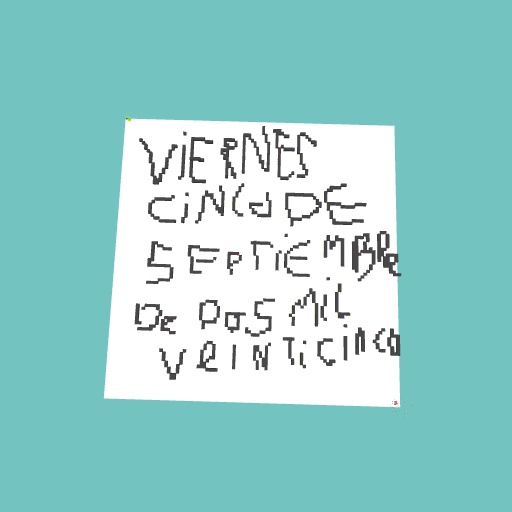 VIERNES
CINCO DE
SEPTIEMBRE
De DOS MIL
VeINTiCinco